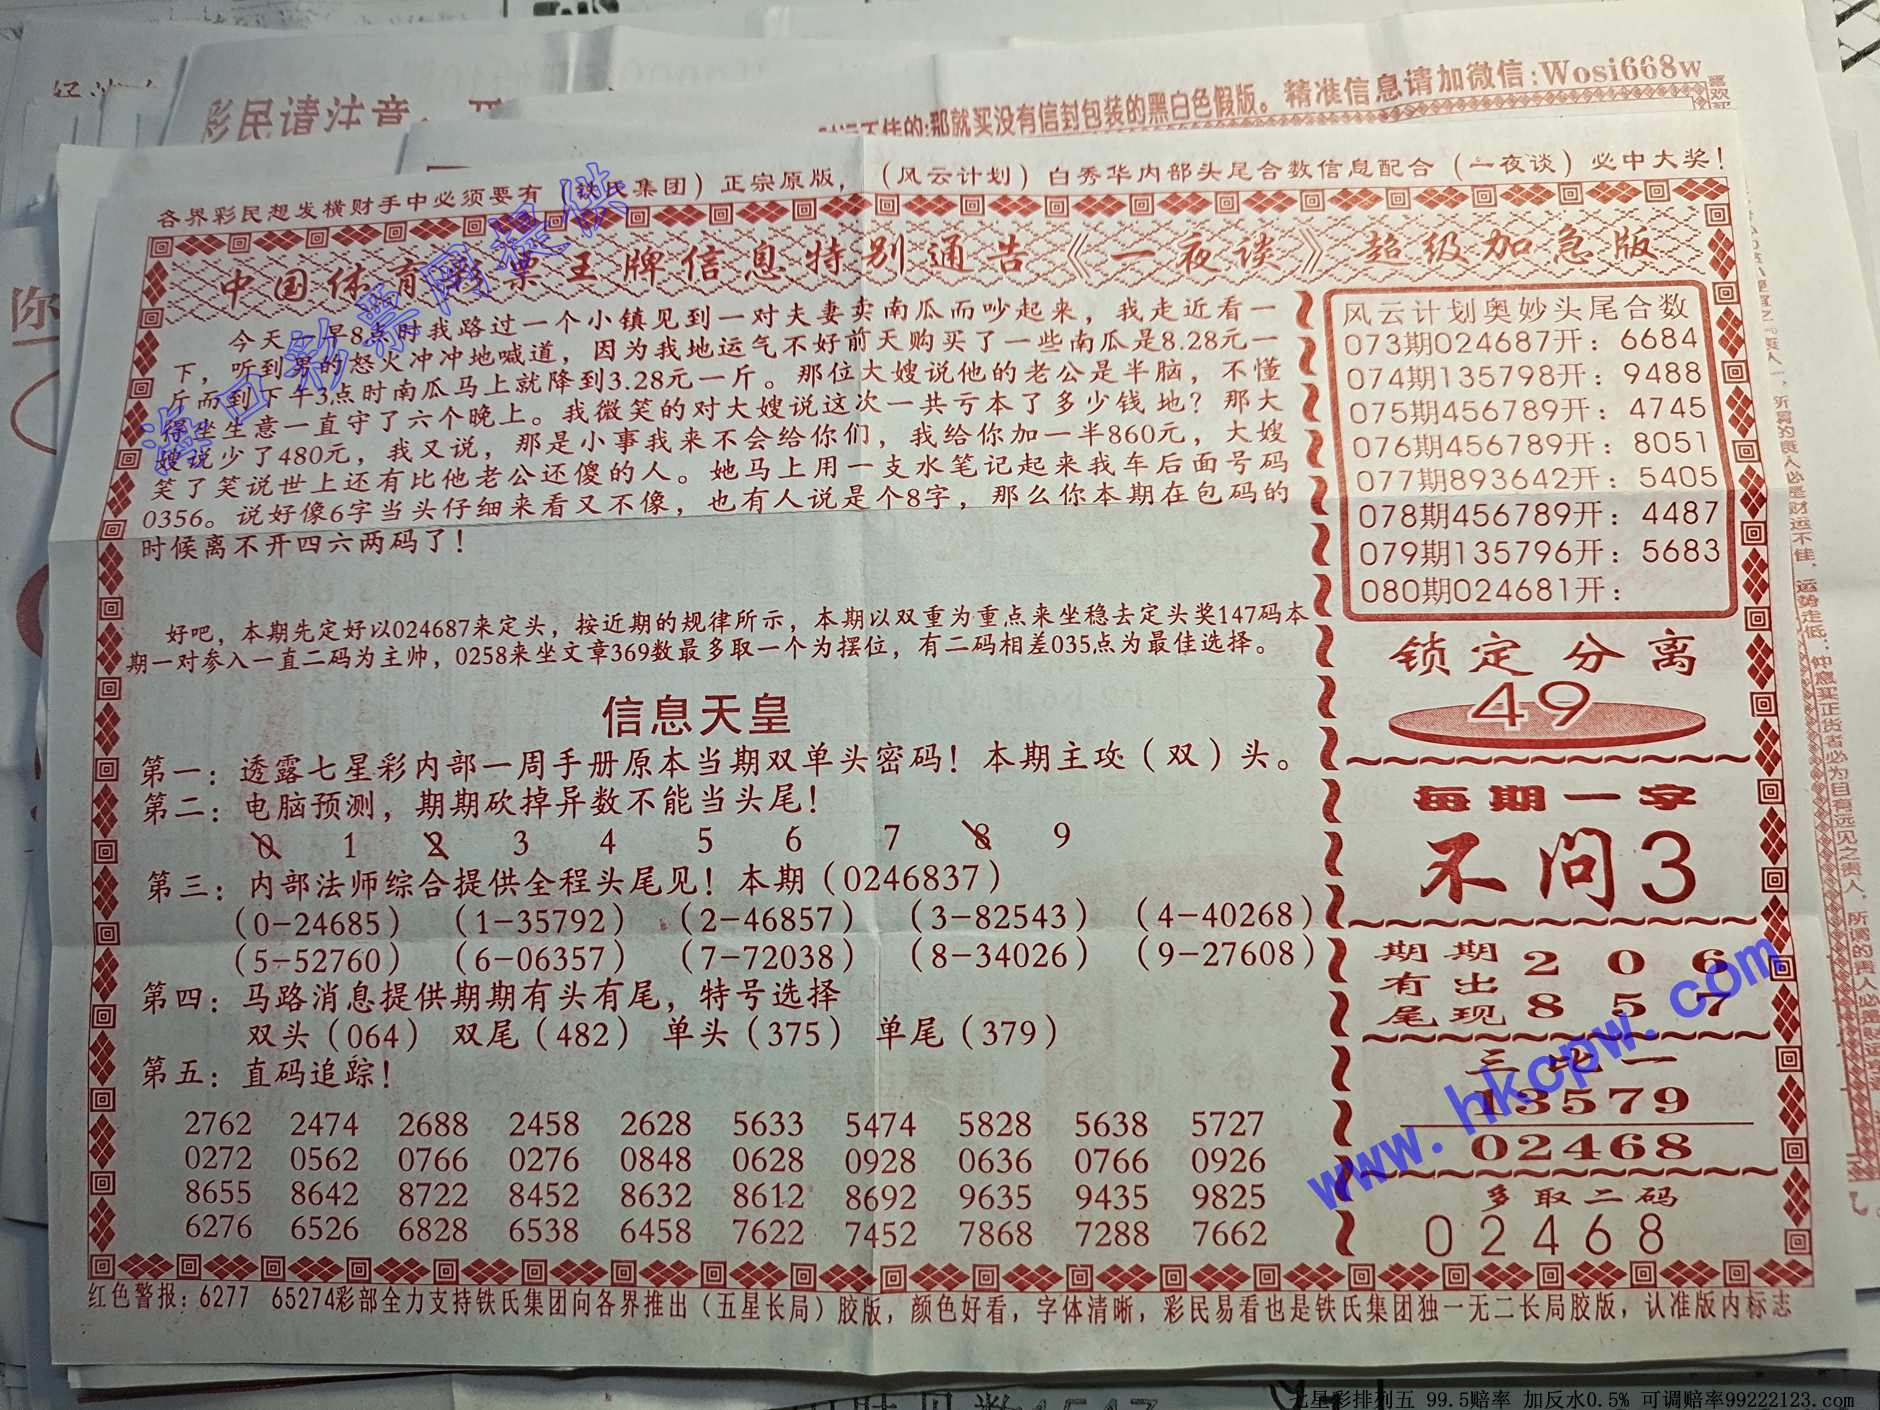 彩民请注意
时运不佳的:那就买没有信封包装的黑白色假版。精准信息请加微信:Wosi668w
各界彩民想发横财手中必须要有（铁氏集团）正宗原版，（风云计划）白秀华内部头尾合数信息配合（一夜谈）必中大奖！
中国体育彩票王牌信息特别通告《一夜谈》超级加急版
今天一早8点时我路过一个小镇见到一对夫妻卖南瓜而吵起来，我走近看一
下，听到男的怒火冲冲地喊道，因为我地运气不好前天购买了一些南瓜是8.28元一
斤而到下午3点时南瓜马上就降到3.28元一斤。那位大嫂说他的老公是半脑，不懂
得坐生意一直守了六个晚上。我微笑的对大嫂说这次一共亏本了多少钱地？那大
嫂说少了480元，我又说，那是小事我来不会给你们，我给你加一半860元，大嫂
笑了笑说世上还有比他老公还傻的人。她马上用一支水笔记起来我车后面号码
0356。说好像6字当头仔细来看又不像，也有人说是个8字，那么你本期在包码的
时候离不开四六两码了！
好吧，本期先定好以024687来定头，按近期的规律所示，本期以双重为重点来坐稳去定头奖147码本
期一对参入一直二码为主帅，0258来坐文章369数最多取一个为摆位，有二码相差035点为最佳选择。
信息天皇
第一：透露七星彩内部一周手册原本当期双单头密码！本期主攻（双）头。
第二：电脑预测，期期砍掉异数不能当头尾！
0 1 2 3 4 5 6 7 8 9
第三：内部法师综合提供全程头尾见！本期（0246837）
（0-24685）（1-35792）（2-46857）（3-82543）（4-40268）
（5-52760）（6-06357）（7-72038）（8-34026）（9-27608）
第四：马路消息提供期期有头有尾，特号选择
双头（064） 双尾（482） 单头（375） 单尾（379）
第五：直码追踪！
2762 2474 2688 2458 2628 5633 5474 5828 5638 5727
0272 0562 0766 0276 0848 0628 0928 0636 0766 0926
8655 8642 8722 8452 8632 8612 8692 9635 9435 9825
6276 6526 6828 6538 6458 7622 7452 7868 7288 7662
风云计划奥妙头尾合数
073期024687开：6684
074期135798开：9488
075期456789开：4745
076期456789开：8051
077期893642开：5405
078期456789开：4487
079期135796开：5683
080期024681开：
锁定分离
49
每期一字
不问3
期期 2 0 6
有出
尾现 8 5 7
三比一
13579
02468
多取二码
02468
红色警报：6277 65274彩部全力支持铁氏集团向各界推出（五星长局）胶版，颜色好看，字体清晰，彩民易看也是铁氏集团独一无二长局胶版，认准版内标志
海口彩票网提供
www.hkcpw.com
七星彩排列五 99.5赔率 加反水0.5% 可调赔率99222123.com